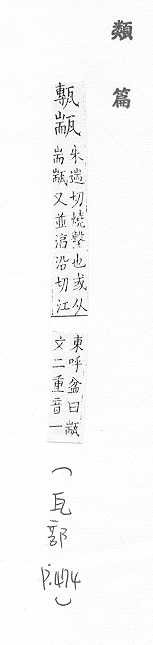 類篇
甎㼷
朱遄切燒墼也或从
耑㼷又並湻沿切江
東呼盆曰㼷
文二重音一
(瓦部 P.474)